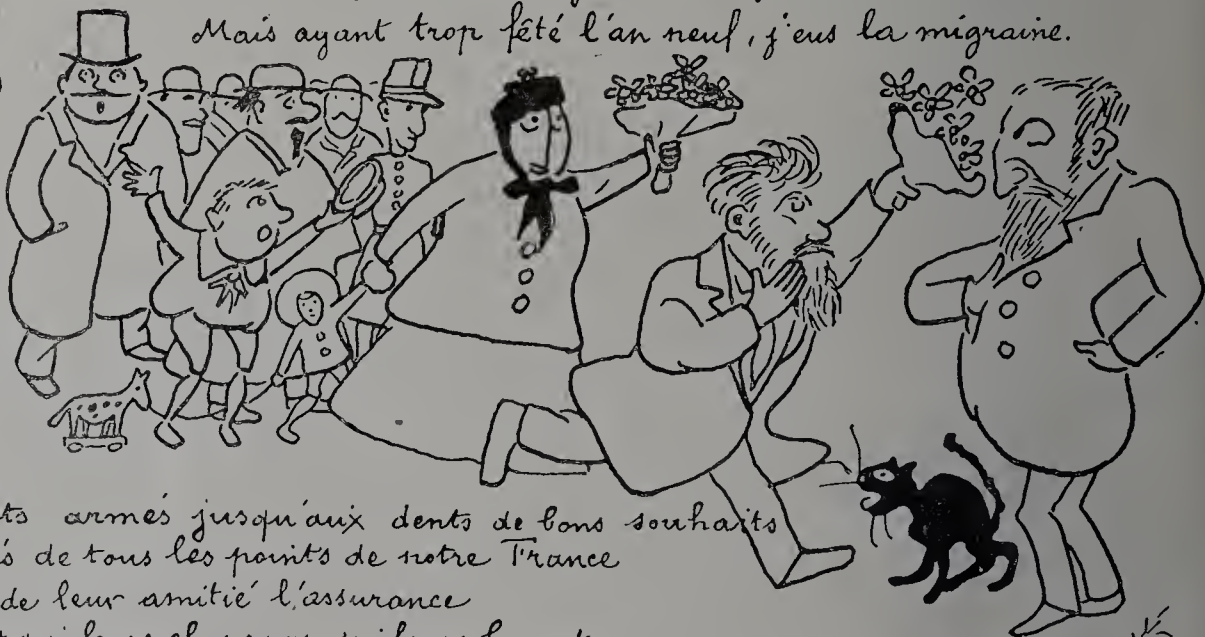 Mais ayant trop fêté l'an neuf, j'eus la migraine.
ts armés jusqu'aux dents de bons souhaits
s de tous les points de notre France
de leur amitié l'assurance